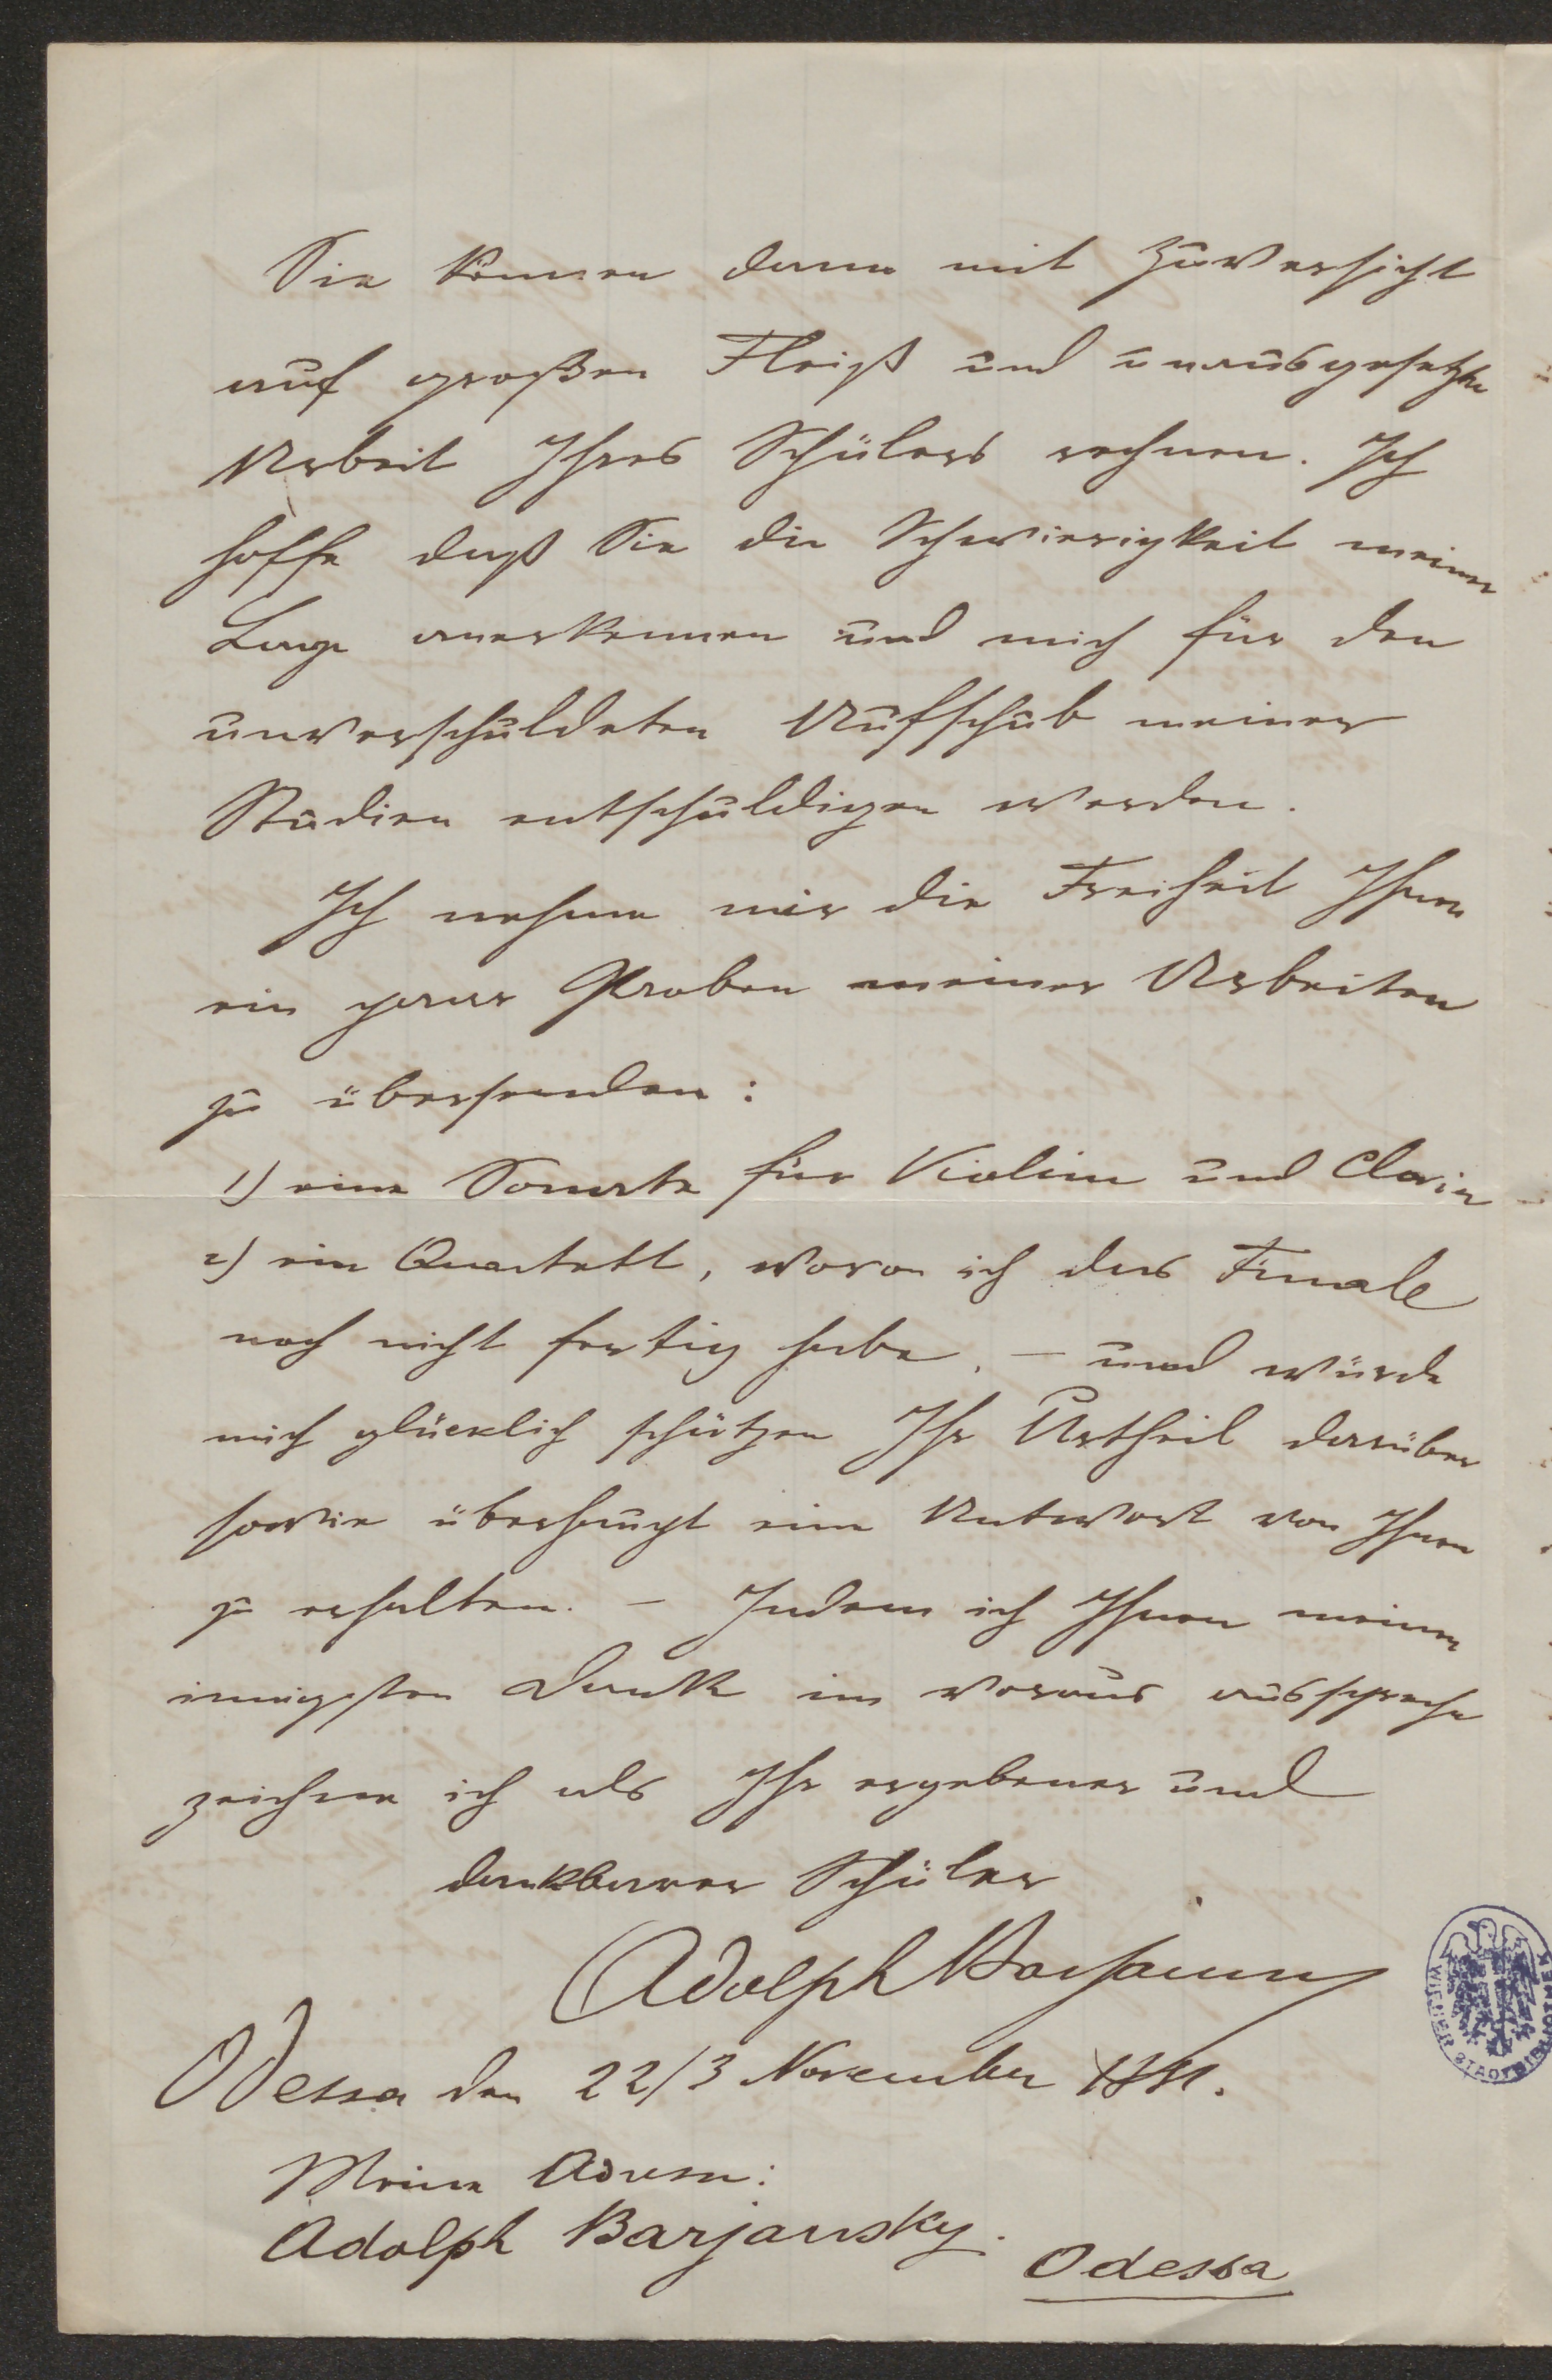 Sie können dann mit Zuversicht
auf großen Fleiß und unausgesetzte
Arbeit Ihres Schülers rechnen. Ich
hoffe daß Sie die Schwierigkeit meiner
Lage anerkennen und mich für den
unverschuldeten Aufschub meiner
Studien entschuldigen werden.
Ich nehme mir die Freiheit Ihnen
ein paar Proben meiner Arbeiten
zu übersenden:
1) eine Sonate für Violine und Clavier
2) ein Quartett, wovon ich das Finale
noch nicht fertig habe, – und würde
mich glücklich schätzen Ihr Urtheil darüber
sowie überhaupt eine Antwort von Ihnen
zu erhalten. – Indem ich Ihnen meinen
innigsten Dank im voraus ausspreche
zeichne ich als Ihr ergebener und
dankbarer Schüler
Adolph
Odessa den 22/3 November
Meine Adresse:
Adolph Barjansky.
Odessa
WIENER STADTBIBLIOTHEK